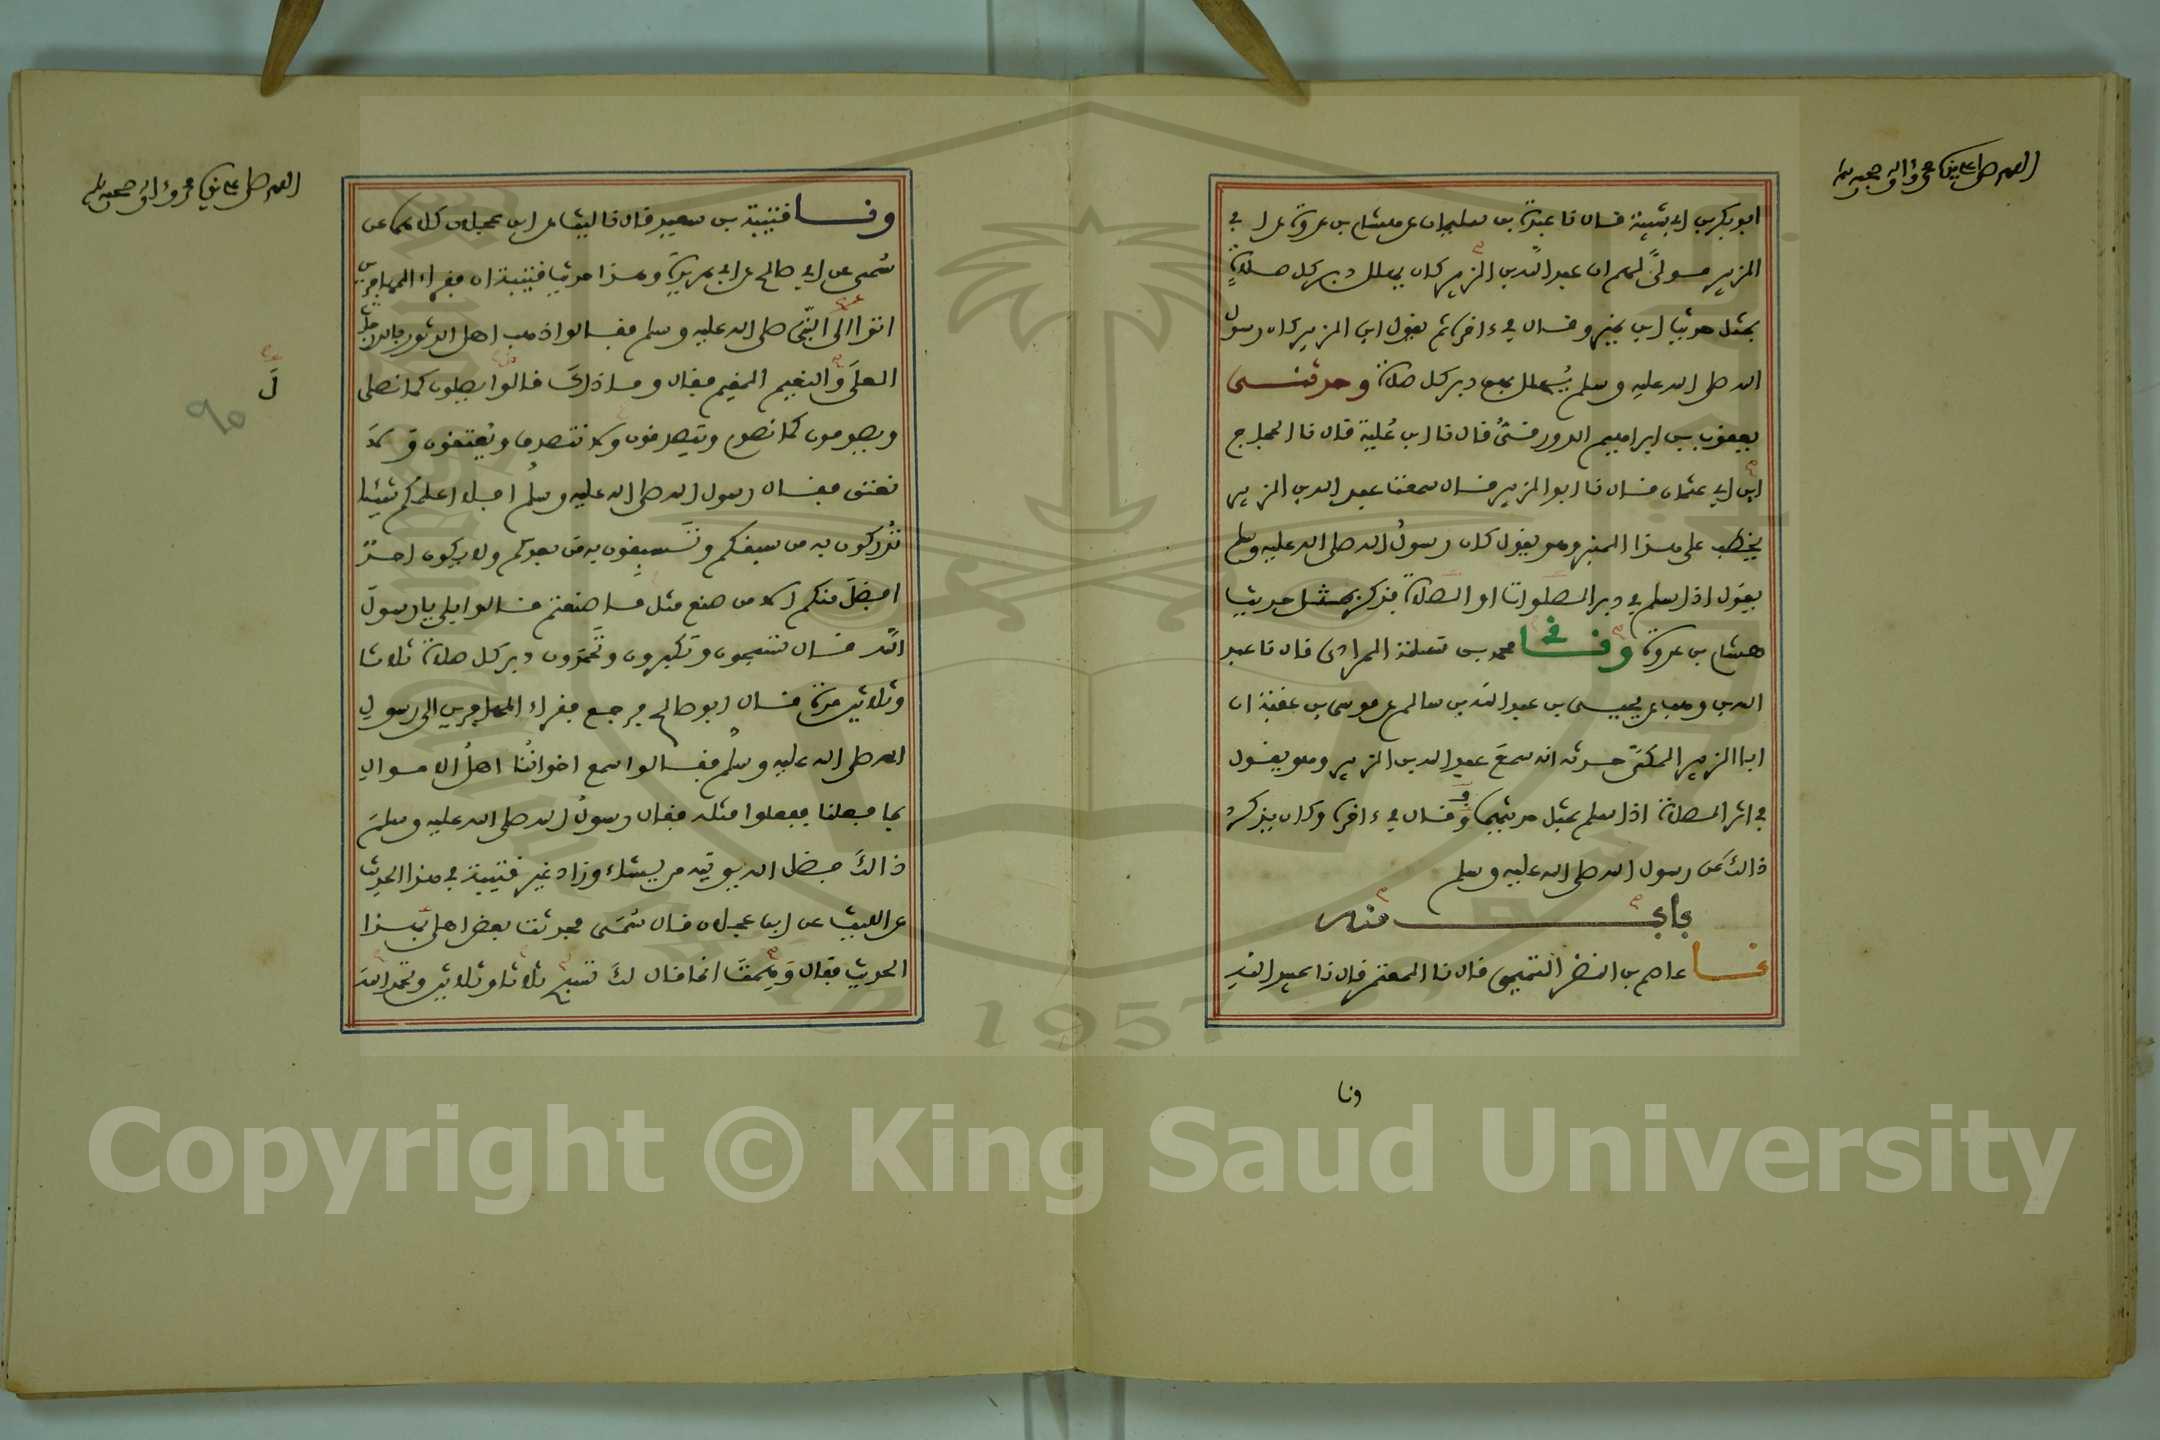 اللهم صل على نبينا محمد وءاله وصحبه وسلم
ابو بكر بن ابي شيبة قال نا عبدة بن سليمان عن هشام بن عروة عن ابي
الزبير مولىً لهم ان عبد الله بن الزبير كان يهلل دبر كل صلاةٍ
بمثل حديث ابن نمير وقال في ءاخره ثم يقول ابن الزبير كان رسول
الله صلى الله عليه وسلم يُهلل بهن دبر كل صلاة وحدثنى
يعقوب بن ابراهيم الدورقىُّ قال نا ابن عُلية قال نا الحجاج
ابن ابي عثمان قال نا ابو الزبير قال سمعت عبد الله بن الزبير
يخطب على هذا المنبر وهو يقول كان رسولُ الله صلى الله عليه وسلم
يقول اذا سلم في دبر الصلوات او الصلاة فذكر بمثل حديث
هشام بن عروة ونا محمد بن سلمة المرادى قال نا عبد
الله بن وهب عن يحيى بن عبد الله بن سالم عن موسى بن عقبة ان
ابا الزبير المكىَّ حدثه انه سمع عبد الله بن الزبير وهو يقول
في اثر الصلاة اذا سلم بمثل حديثهما وقال في ءاخره وكان يذكر
ذالك عن رسول الله صلى الله عليه وسلم
باب منه
نا عاصم بن النضر التميمى قال نا المعتمر قال نا عبيد الله
ونا
اللهم صل على نبينا محمد وءاله وصحبه وسلم
ونا قتيبة بن سعيد قال نا ليث عن ابن عجلان كلاهما عن
سُمى عن ابي صالح عن ابي هريرة وهذا حديث قتيبة ان فقراء المهاجرين
اتوا الى النبي صلى الله عليه وسلم فقالوا ذهب اهل الدثور بالدرجات
العلَى والنعيم المقيم فقال وما ذاك قالوا يصلون كما نصلى
ويصومون كما نصوم ويتصدقون ولا نتصدق ويُعتقون ولا
نعتق فقال رسول الله صلى الله عليه وسلم افلا اعلمكم شيئا
تُدركون به من سبقكم وتَسبِقون به من بعدكم ولا يكون احدٌ
افضلَ منكم الا من صنع مثل ما صنعتم قالوا بلى يا رسول
الله قال تسبحون وتكبرون وتَحمَدون دبر كل صلاة ثلاثا
وثلاثين مرة قال ابو صالح فرجع فقراء المهاجرين الى رسول
الله صلى الله عليه وسلم فقالوا سمع اخواننُا اهلُ الاموال
بما فعلنا ففعلوا مثله فقال رسولُ الله صلى الله عليه وسلم
ذالك فضل الله يوتيه من يشاء وزاد غير قتيبة في هذا الحديث
عن الليث عن ابن عجلان قال سُمَى فحدثت بعض اهلى هذا
الحديث فقال وَهِمتَ انما قال لك تسبح ثلاثا وثلاثين وتحمد الله
لَ
٩٥
Copyright © King Saud University
1957